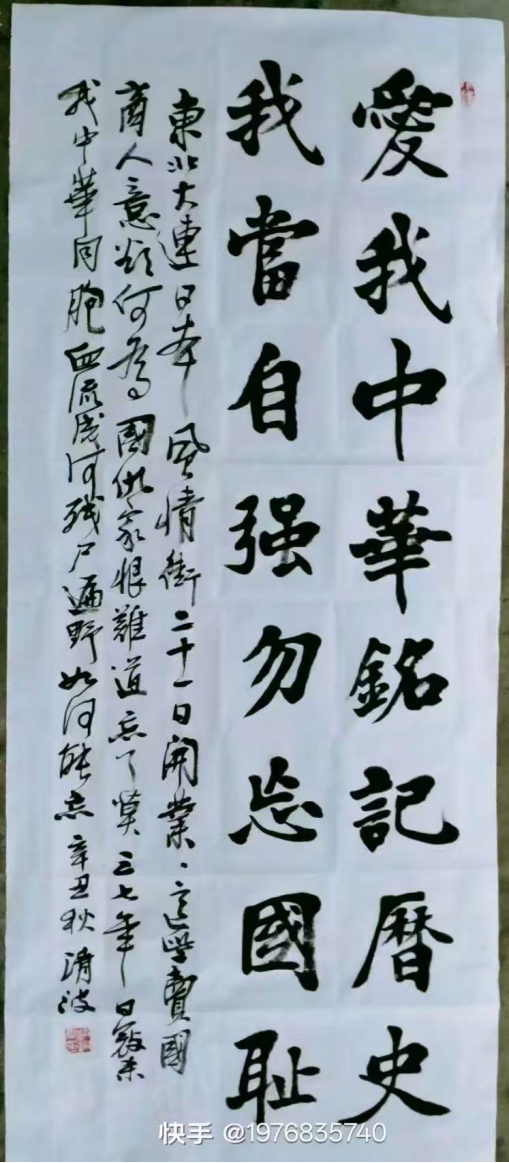 愛我中華銘記曆史
我當自强勿忘國恥
東北大連日本風情街二十一日開業、這學賣國
商人意欲何爲國仇家恨難道忘了莫三七年日寇杀
我中華同胞血流成河残尸遍野如何能忘辛丑秋清波
快手 @1976835740